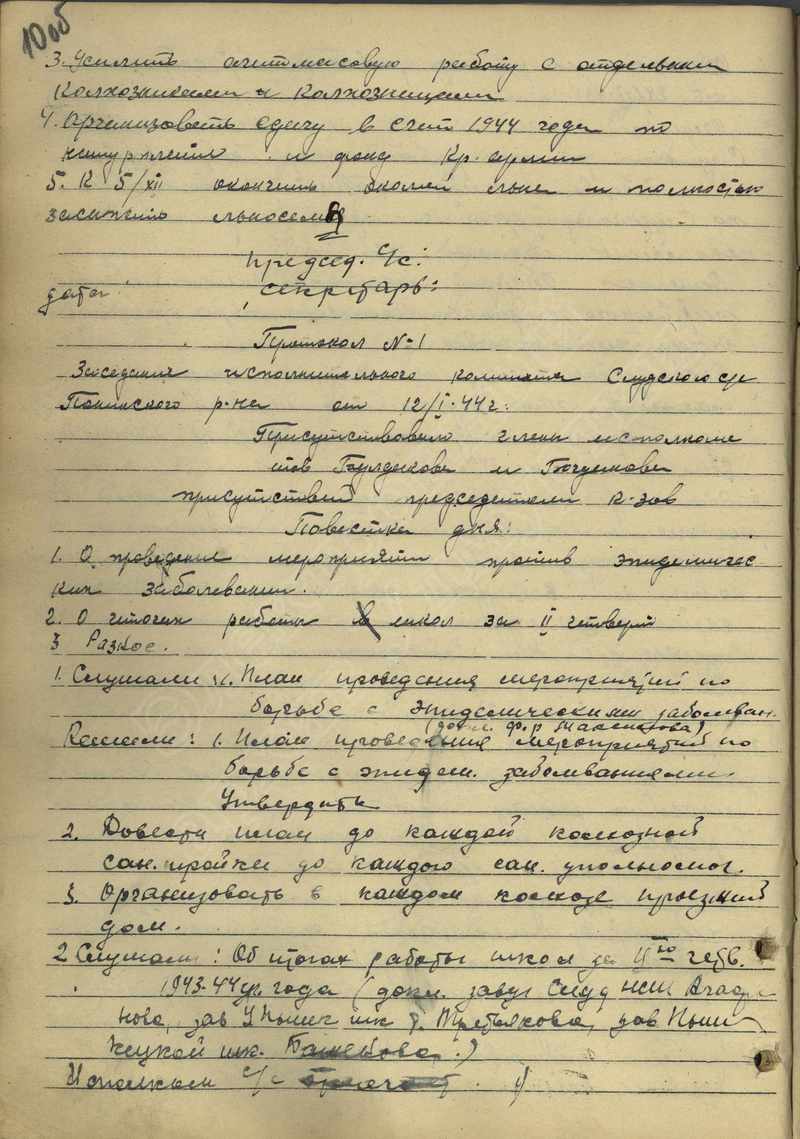 10об
3. Усилить агитмасовую работу с отдельными
колхозниками и колхозницами
4. Организовать сдачу в счет 1944 года по
и фонд Кр. армии
5. К 5/XII окончить льна и полностью
засыпать льносемя
Председ. с/с:
дата: секретарь:
Протокол №1
Заседания исполнительного комитета Слудского с/с
р-на от 12/I-44 г.
Присутствовало члены исполкома
тов Булдакова и
присутствий председатели к-зов
Повестка дня:
1. О проведение мероприяти против эпидемичес
ких заболевании.
2. О итогах работы школ за II четверт
3 Разное.
1. Слушали: 1. План проведения мероприятий по
борьбе с эпидемическими заболеван.
(докл. ф-р)
Решили: 1. План проведения мероприятий по
борьбе с эпидем. заболеваниями
Утвердить
2. Довести план до каждой колхозной
сан. тройки до каждого сан. уполномоч.
3. Организовать в каждом колхозе приезжий
дом.
2 Слушали: Об итогах работы школ за II-ю четв.
1943-44 уч. года (докл. завуч Слуд НСШ
зав шк т. Третьякова, зав
шк.)
Исполком с/с